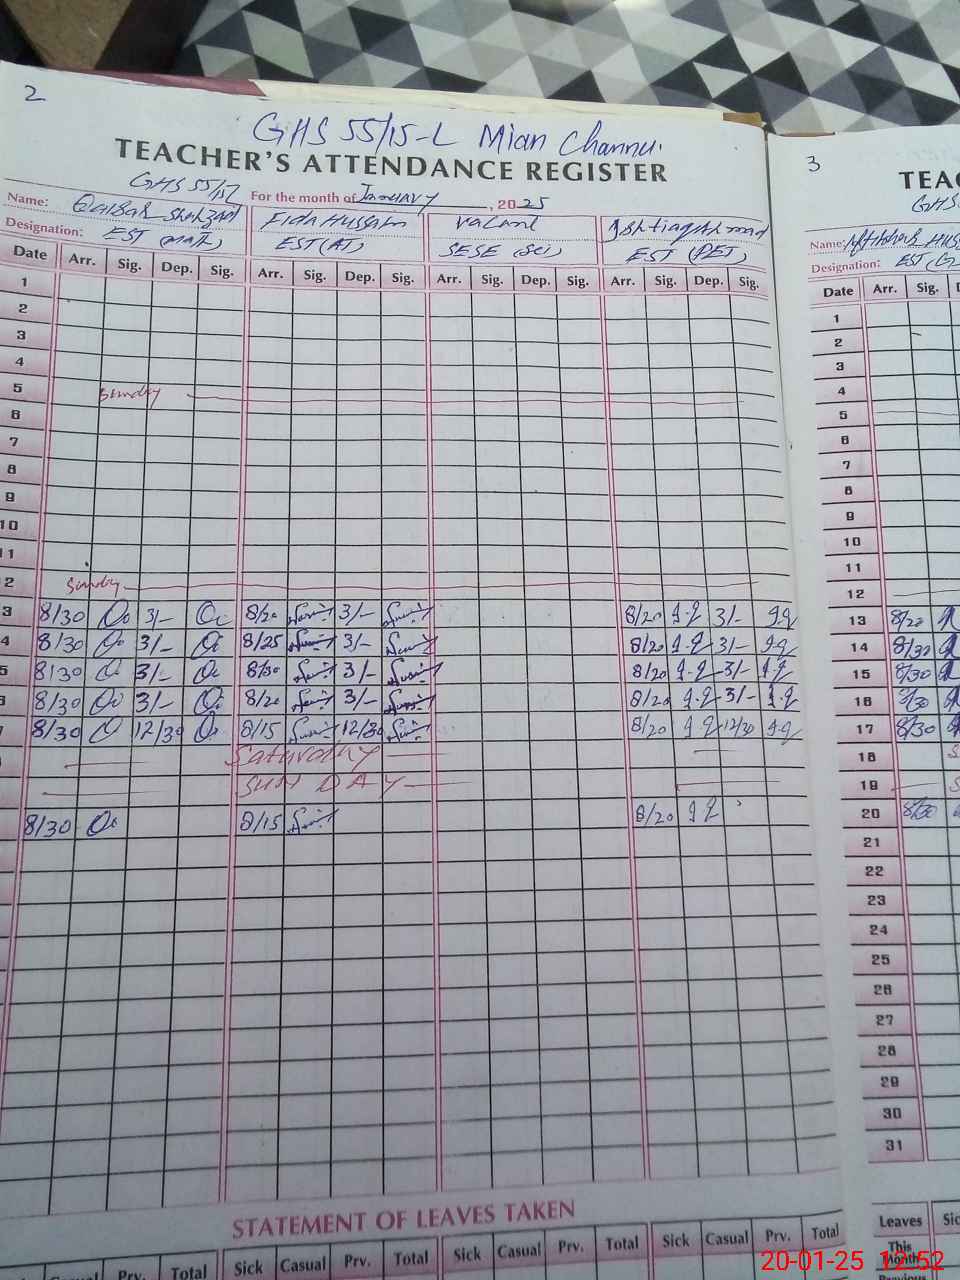 2
GHS 55/15-L Mian Channu.
TEACHER'S ATTENDANCE REGISTER
GHS 55/15L
For the month of January, 2025
Name: Qaisar Shahzad Fida Hussain Vacant
Designation: EST (Math) EST (AT) SESE (Sci) EST (PET)
Date Arr. Sig. Dep. Sig. Arr. Sig. Dep. Sig. Arr. Sig. Dep. Sig. Arr. Sig. Dep. Sig.
1
2
3
4
5 Sunday
6
7
8
9
10
11
2 Sunday
3 8/30 3/- 8/20 3/- 8/20 3/-
4 8/30 3/- 8/25 3/- 8/20 3/-
5 8/30 3/- 8/30 3/- 8/20 3/-
8/30 3/- 8/20 3/- 8/20 3/-
8/30 12/30 8/15 12/30 8/20 12/30
Saturday
SUNDAY
8/30 8/15 8/20
STATEMENT OF LEAVES TAKEN
Casual Prv. Total Sick Casual Prv. Total Sick Casual Prv. Total Sick Casual Prv. Total
3
TEAC
GHS
Name:
Designation: EST
Date Arr. Sig.
1
2
3
4
5
6
7
8
9
10
11
12
13 8/20
14 8/30
15 8/30
16 8/30
17 8/30
18 S
19 S
20 8/30
21
22
23
24
25
26
27
28
29
30
31
Leaves Sic
This
Month
Previous
20-01-25 12:52